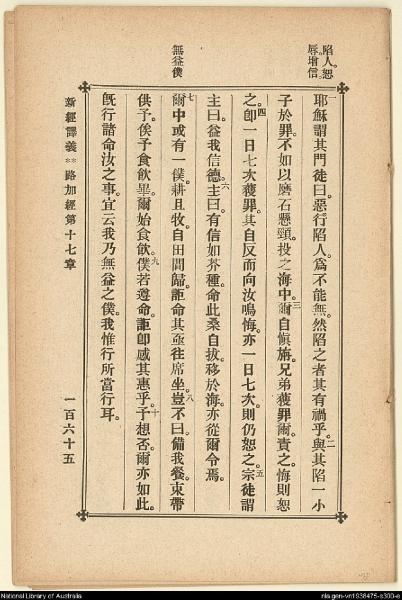 陷人。恕
辱。增信
無益僕
一
耶穌謂其門徒曰。惡行陷人。爲不能無。然陷之者其有禍乎。二與其陷一小
子於罪。不如以磨石懸頸。投之海中。三爾自愼旃。兄弟獲罪爾。責之。悔則恕
之。四卽一日七次獲罪。其自反而向汝鳴悔。亦一日七次。則仍恕之。五宗徒謂
主曰。益我信德。六主曰。有信如芥種。命此桑自拔。移於海。亦從爾令焉。
七爾中或有一僕。耕且牧。自田間歸。詎命其亟往席坐。八豈不曰。備我餐。束帶
供予。俟予食飲畢。爾始食飲。九僕若遵命。詎卽感其惠乎。十予想否。爾亦如此。
旣行諸命汝之事。宜云我乃無益之僕。我惟行所當行耳。
新經譯義 ** 路加經第十七章
一百六十五
National Library of Australia
nla.gen-vn1938475-s300-e